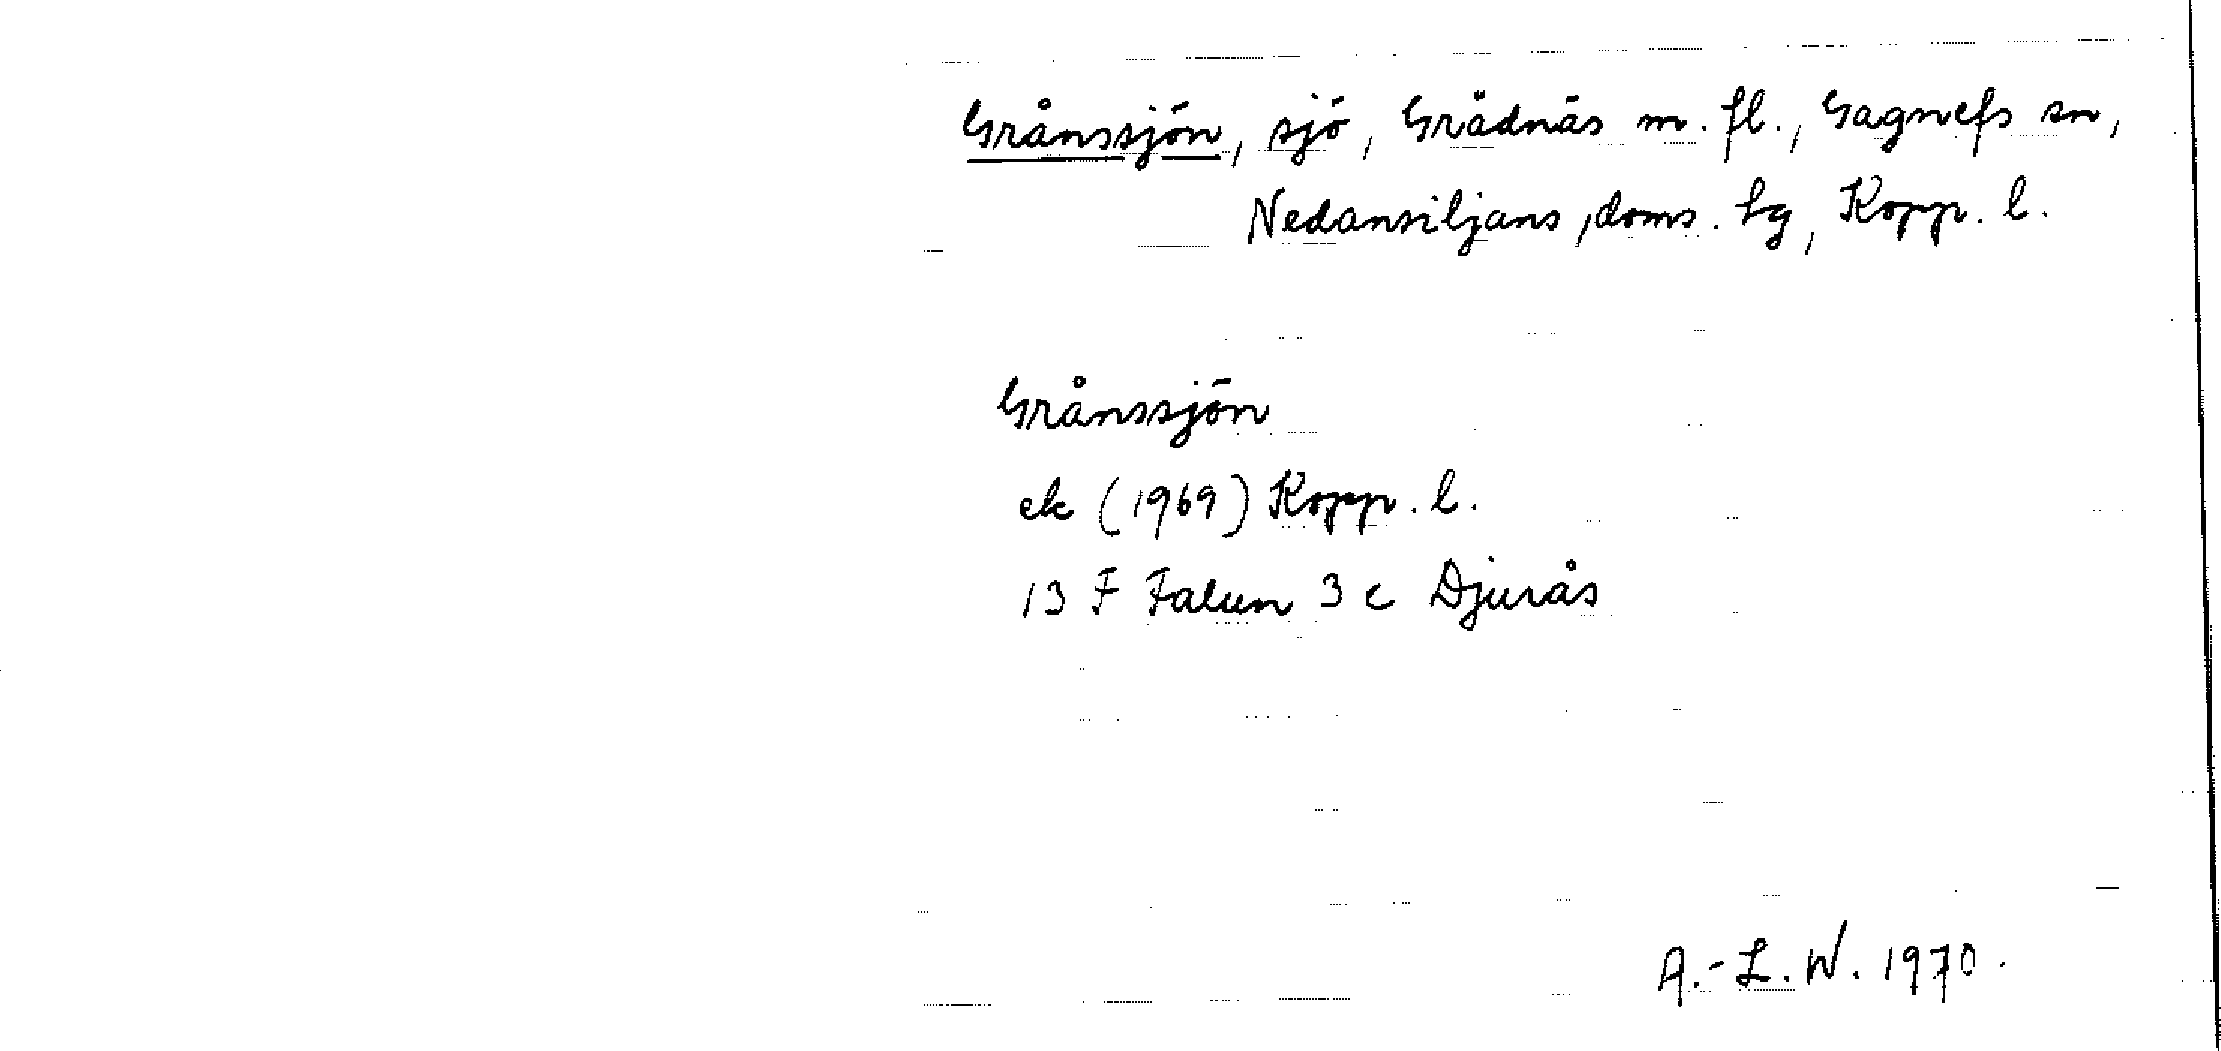 Grånssjön, sjö, Grådnäs m. fl., Gagnefs sn,
Nedansiljans, doms. tg, Kopp. l.
Grånssjön
ek (1969) Kopp. l.
13 F Falun 3 c Djurås
A.-L. W. 1970.